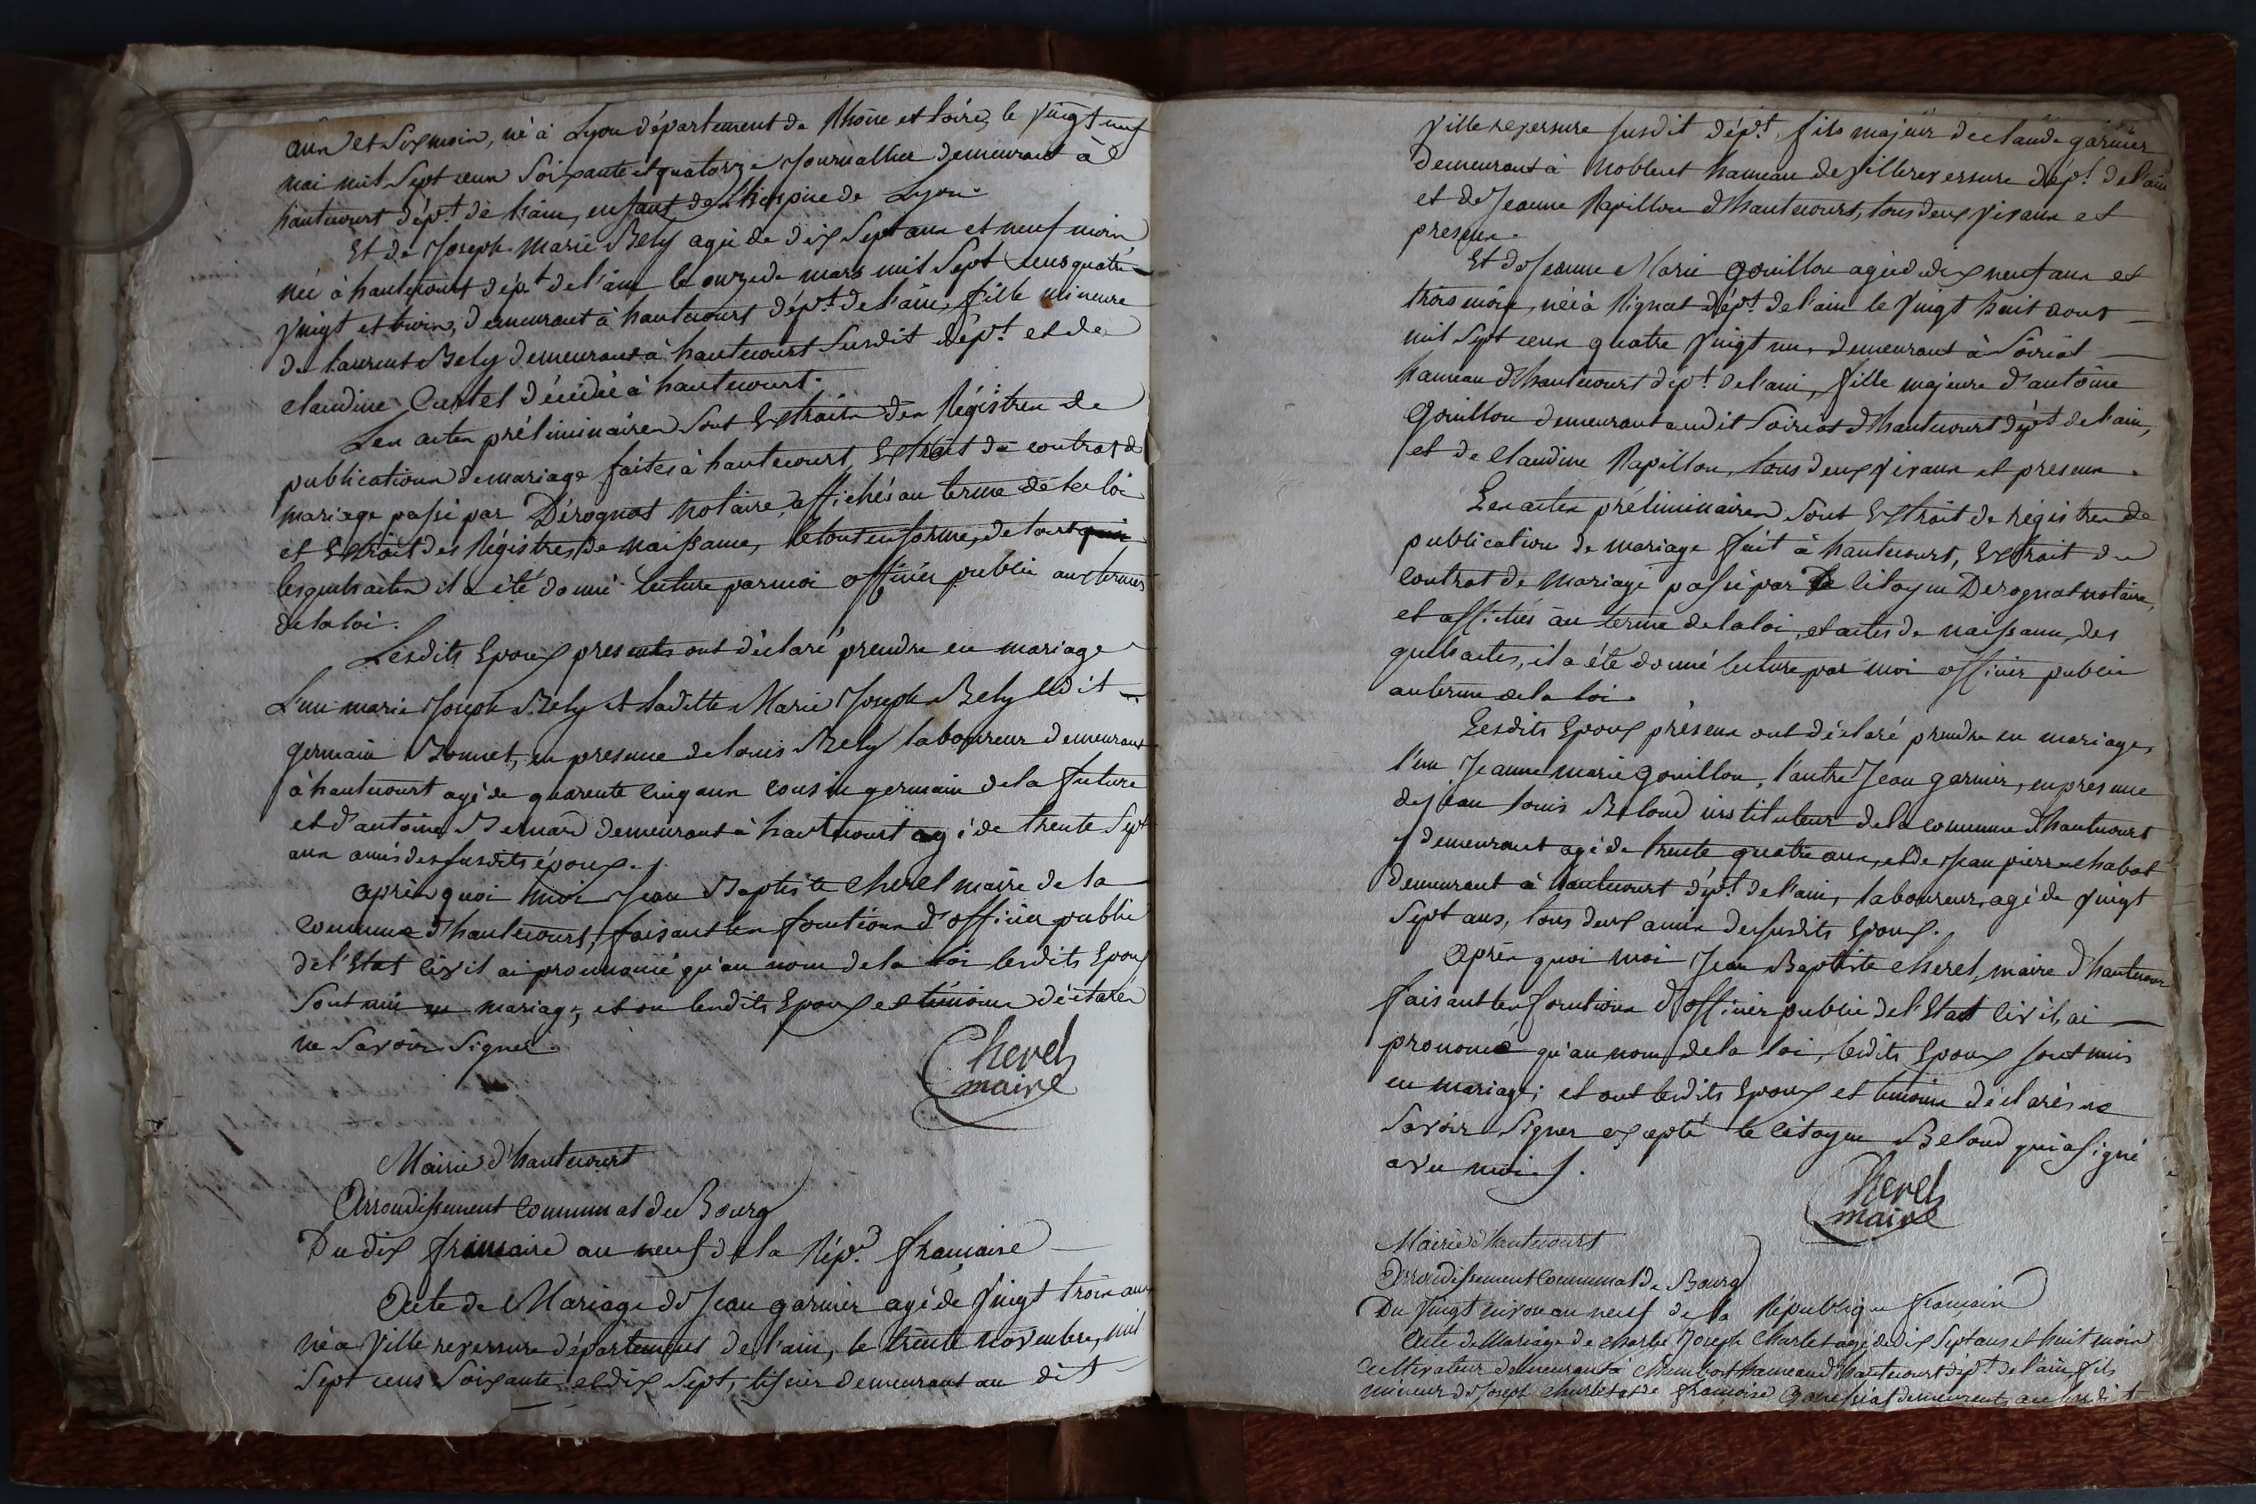 ans et six mois, né à Lyon département de Rhône et Loire, le vingt neuf
mai mil sept cens soixante et quatorze, journallier demeurant à
hautecourt dép.t de l'ain, enfant de l'hospice de Lyon.
Et de Joseph Marie Bely agée de dix sept ans et neuf mois
née à hautecourt dép.t de l'ain le onze de mars mil sept cens quatre
vingt et trois, demeurant à hautecourt dép.t de l'ain, fille mineure
de laurent Bely demeurant à hautecourt susdit dép.t et de
claudine décédée à hautecourt.
Les actes préliminaires sont Extraits des Régistres de
publications de mariage faites à hautecourt, Extrait de contrat de
mariage passé par Dérognat notaire, affichés au terme de la loi
et Extrait des Régistres de naissance, le tout en forme, de tout
lesquels actes il a été donné lecture par moi officier public aux termes
de la loi.
Lesdits Epoux presents ont déclaré prendre en mariage
L'un marie Joseph Bely et ladite Marie Joseph Bely ledit
germain Bonnet, en presence de louis Bely laboureur demeurant
à hautecourt agé de quarente cinq ans cousin germain de la future
et d'antoine Bernard demeurant à hautecourt agé de trente sept
ans amis des susdits époux.
après quoi moi Jean Baptiste Cherel maire de la
commune d'hautecourt, faisant les fonctions d'officier public
de l'Etat civil ai prounoncé qu'au nom de la loi lesdits Epoux
sont unis en mariage, et on lesdits Epoux et témoins déclarés
ne savoir signer.
Cherel
maire
Mairie d'hautecourt
Arrondissement communal de Bourg
Du dix frimaire an neuf de la Rép. française
Acte de Mariage de Jean garnier agé de vingt trois ans
né a Villereversure département de l'ain, le trente novembre, mil
sept cens soixante et dix sept, demeurant au dit
Villereversure susdit dép.t, fils majeur de claude garnier
demeurant à Noblens hameau de Villereversure dép.t de l'ain
et de Jeanne Rapillon d'hautecourt, tous deux vivans et
presens.
Et de Jeanne Marie Gouillon agée de dix neuf ans et
trois mois, née à Rignat dép.t de l'ain le vingt huit aout
mil sept cens quatre vingt un, demeurant à Soiriat
hameau d'hautecourt dép.t de l'ain, fille majeure d'antoine
Gouillon demeurant audit Soiriat d'hautecourt dép.t de l'ain,
et de claudine Rapillon, tous deux vivans et presens.
Les actes préliminaires sont Extrait de régistres de
publication de mariage fait à hautecourt, Extrait du
contrat de mariage passé par le citoyen Derognat notaire,
et affichés au terme de la loi, et actes de naissance, des
quels actes, il a été donné lecture par moi officier public
au terme de la loi.
Lesdits Epoux présens ont déclaré prendre en mariage,
l'un Jeanne marie gouillon, l'autre Jean garnier, en presence
de Jean louis Beloud instituteur de la commune d'hautecourt
y demeurant agé de trente quatre ans, et de Jean pierre chabot
demeurant à hautecourt dép.t de l'ain, laboureur, agé de vingt
sept ans, tous deux amis des susdits Epoux.
Après quoi moi Jean Baptiste Cherel, maire d'hautecour
faisant les fonctions d'officier public de l'Etat civil, ai
prononcé qu'au nom de la loi, lesdits Epoux sont unis
en mariage; et ont lesdits Epoux et temoins déclarés ne
savoir signer excepté le citoyen Beloud qui a signé
avec moi.
Cherel
maire
Mairie d'hautecourt
Arrondissement Communal de Bourg
Du vingt nivose an neuf de la République francaise
Acte de Mariage de charle Joseph Charlet agé de dix sept ans et huit mois
cultivateur demeurant à Chambod hameau d'hautecourt dép.t de l'ain, fils
mineur de Joseph Charlet et de françoise demeurants au susdit